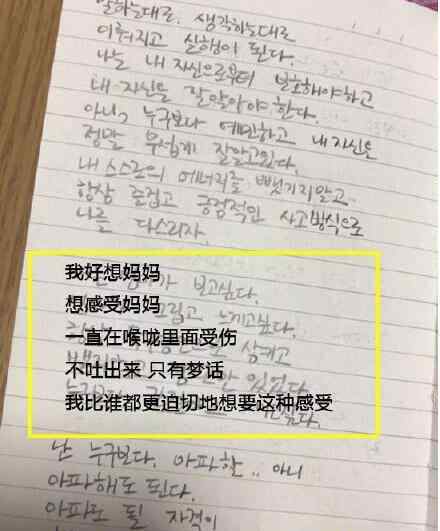 말하는대로. 생각하는대로
이뤄지고 실행이 된다.
나는 내 자신으로부터 보호해야하고
내 자신을 잘 알아야 한다.
아니, 누구보다 예민하고 내 자신은
정말 무섭게 잘알고있다.
내 스스로의 에너지를 뺏기지말고
항상 즐겁고 긍정적인 사고방식으로
나를 다스리자.
가 보고싶다.
그립고 느끼고싶다.
삼키고
있다.
我好想妈妈
想感受妈妈
一直在喉咙里面受伤
不吐出来 只有梦话
我比谁都更迫切地想要这种感受
난 누구보다. 아파한.. 아니
아파해도 된다.
아파도 될 자격이